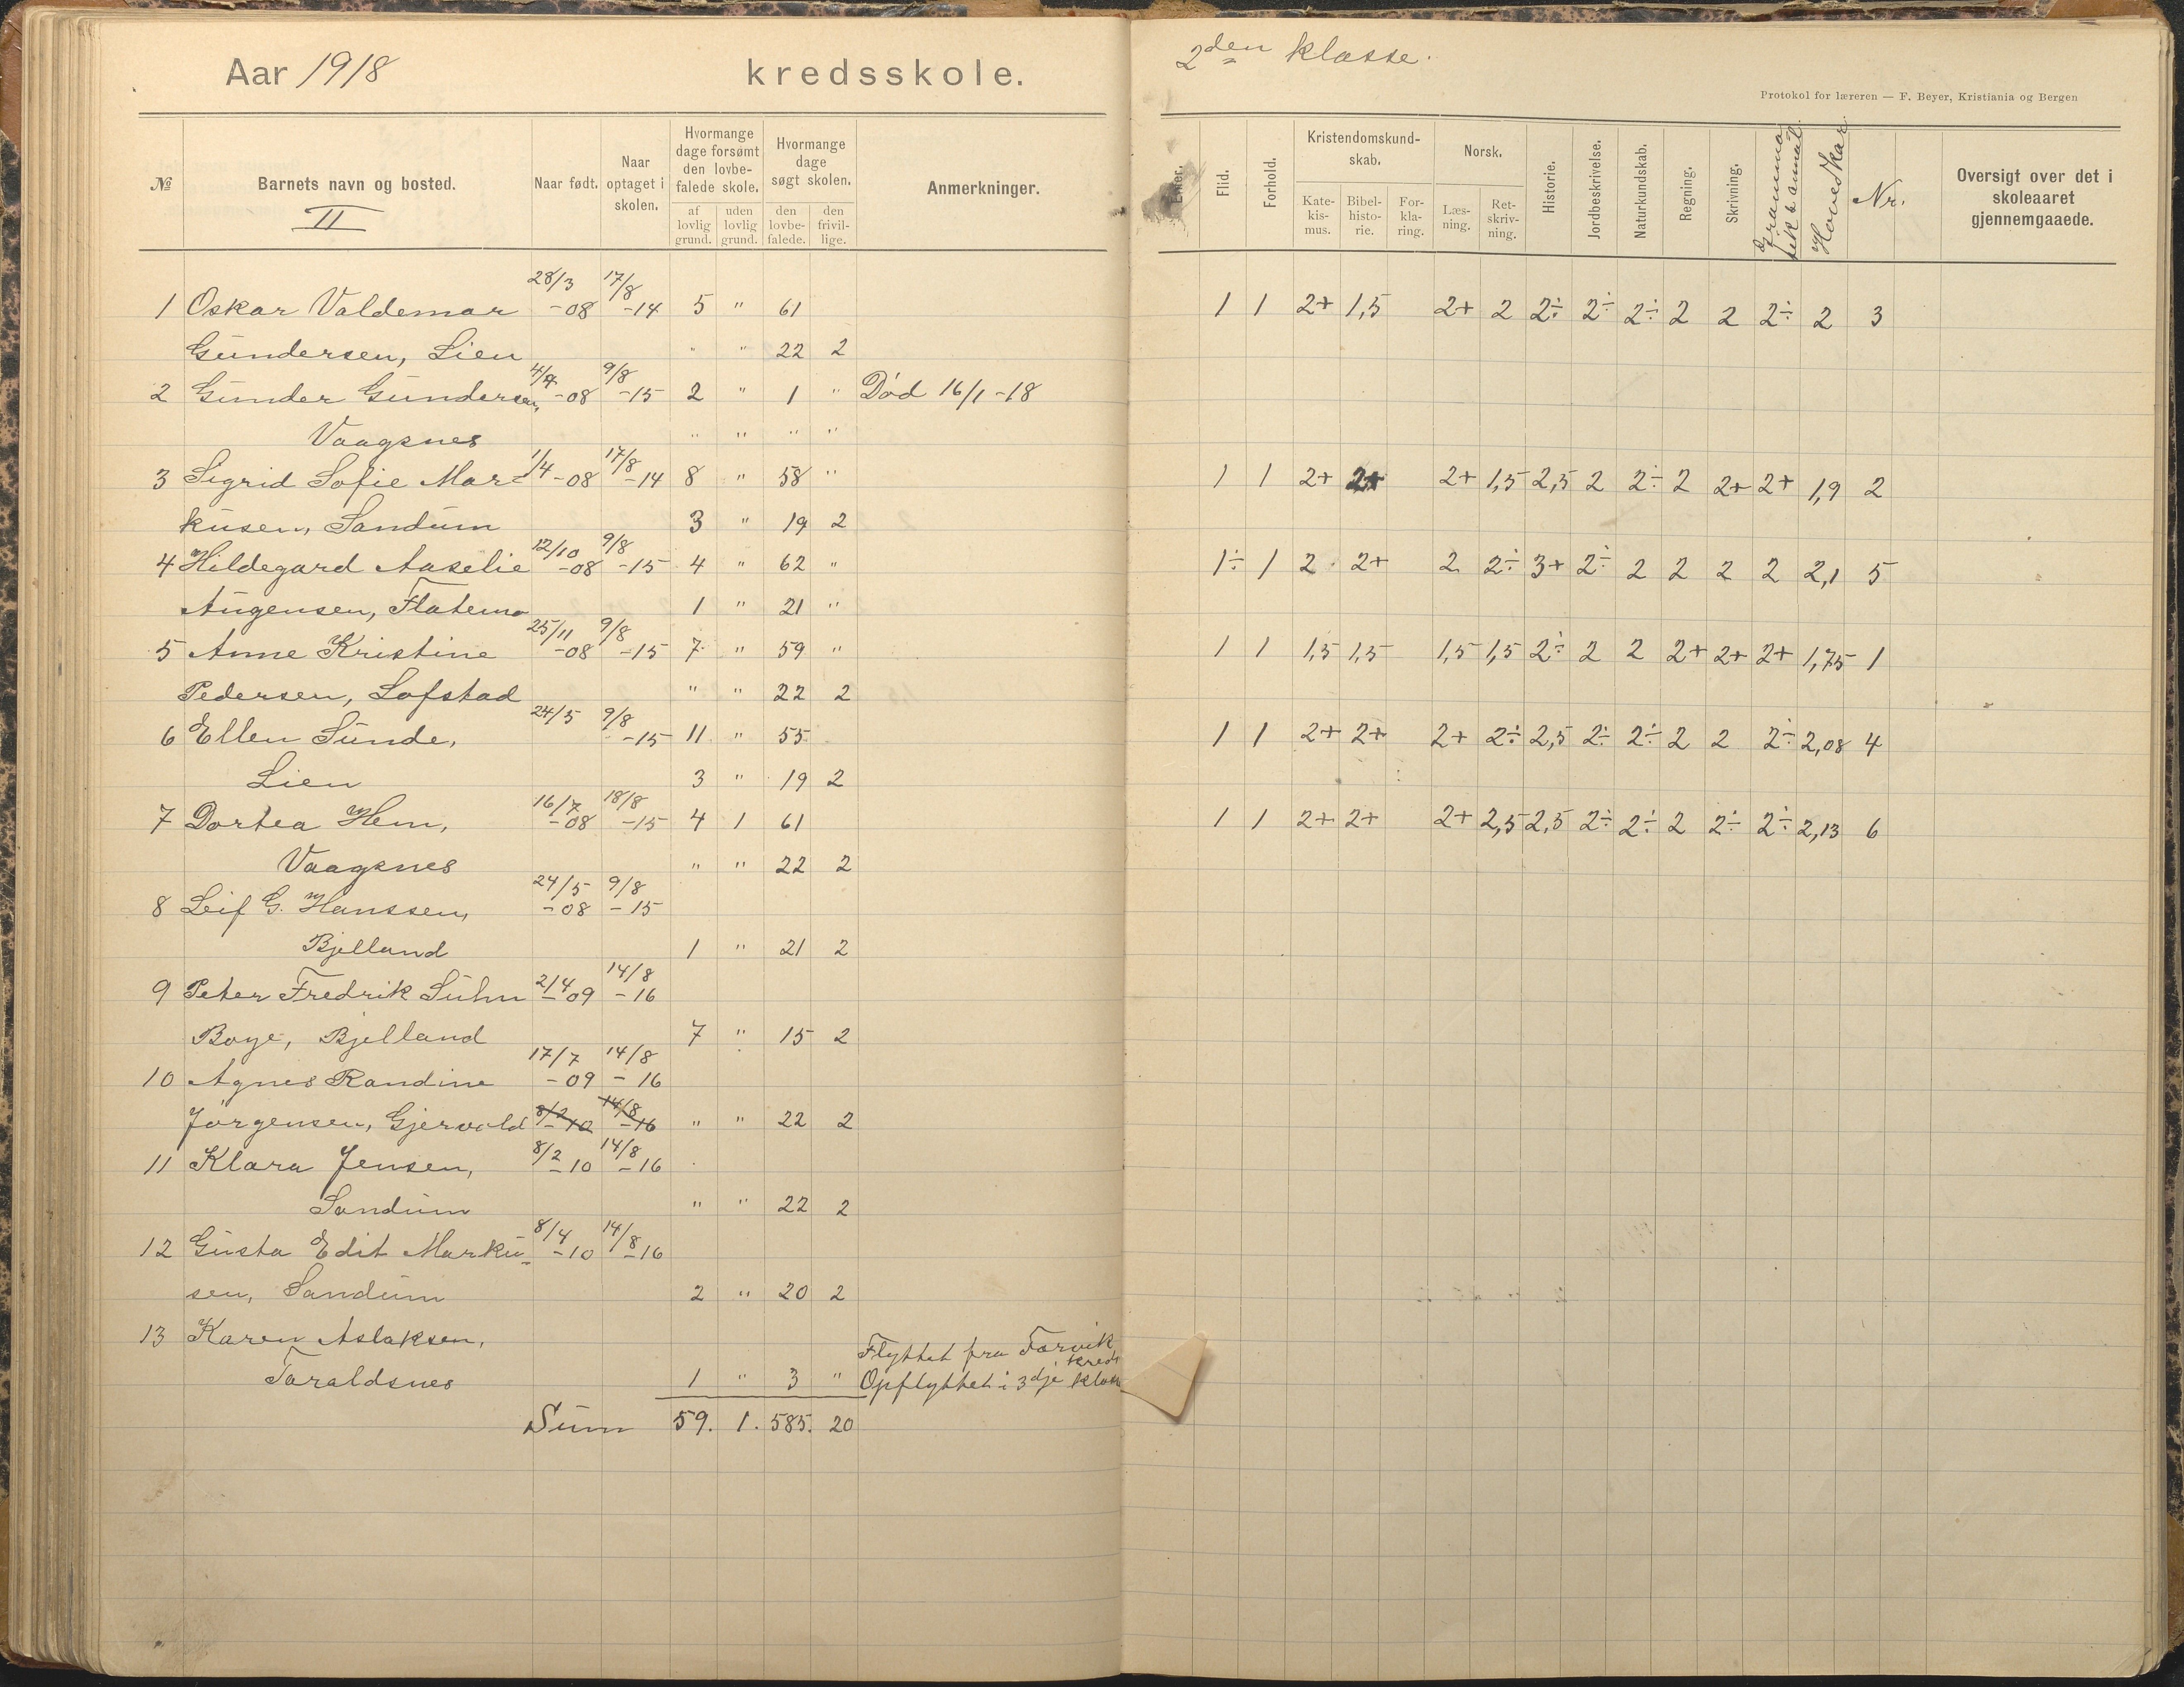 Aar 1918 kredsskole.
№ Barnets navn og bosted. Naar født. Naar optaget i skolen. Hvormange dage forsømt den lovbefalede skole. Hvormange dage søgt skolen. Anmerkninger.
af lovlig grund. uden lovlig grund. den lovbefalede. den frivillige.
II
28/3 17/8
1 Oskar Valdemar -08 -14 5 " 61
Gundersen, Lien " " 22 2
4/7 9/8
2 Gunder Gundersen, -08 -15 2 " 1 " Død 16/1 -18
Vaagsnes " " " "
1/4 17/8
3 Sigrid Sofie Mar- -08 -14 8 " 58 "
kusen, Sandum 3 " 19 2
12/10 9/8
4 Hildegard Aaselie -08 -15 4 " 62 "
Augensen, Flatemo 1 " 21 "
25/11 9/8
5 Anne Kristine -08 -15 7 " 59 "
Pedersen, Lofstad " " 22 2
24/5 9/8
6 Ellen Sunde, -15 11 " 55
Lien 3 " 19 2
16/7 18/8
7 Dortea Hem, -08 -15 4 1 61
Vaagsnes " " 22 2
24/5 9/8
8 Leif G. Hanssen, -08 -15
Bjelland 1 " 21 2
14/8
9 Peter Fredrik Suhm 2/4 09 -16
Boye, Bjelland 7 " 15 2
17/7 14/8
10 Agnes Randine -09 -16
Jørgensen, Gjervold 8/2 -10 14/8 -16 " " 22 2
8/2 14/8
11 Klara Jensen, -10 -16
Sandum " " 22 2
8/4 14/8
12 Gusta Edit Marku- -10 -16
sen, Sandum 2 " 20 2
13 Karen Aslaksen,
Flyttet fra Torvik kreds
Taraldsnes 1 " 3 " Opflyttet i 3dje klasse
Sum 59. 1. 585. 20
2den klasse.
Protokol for læreren — F. Beyer, Kristiania og Bergen
Flid. Forhold. Kristendomskundskab. Norsk. Historie. Jordbeskrivelse. Naturkundskab. Regning. Skrivning. Hovedkar. Nr. Oversigt over det i skoleaaret gjennemgaaede.
Katekismus. Bibelhistorie. Forklaring. Læsning. Retskrivning.
1 1 2+ 1,5 2+ 2 2÷ 2÷ 2÷ 2 2 2÷ 2 3
1 1 2+ 2+ 2+ 1,5 2,5 2 2÷ 2 2+ 2+ 1,9 2
1÷ 1 2 2+ 2 2÷ 3+ 2÷ 2 2 2 2 2,1 5
1 1 1,5 1,5 1,5 1,5 2÷ 2 2 2+ 2+ 2+ 1,75 1
1 1 2+ 2+ 2+ 2÷ 2,5 2÷ 2÷ 2 2 2÷ 2,08 4
1 1 2+ 2+ 2+ 2,5 2,5 2÷ 2÷ 2 2÷ 2÷ 2,13 6